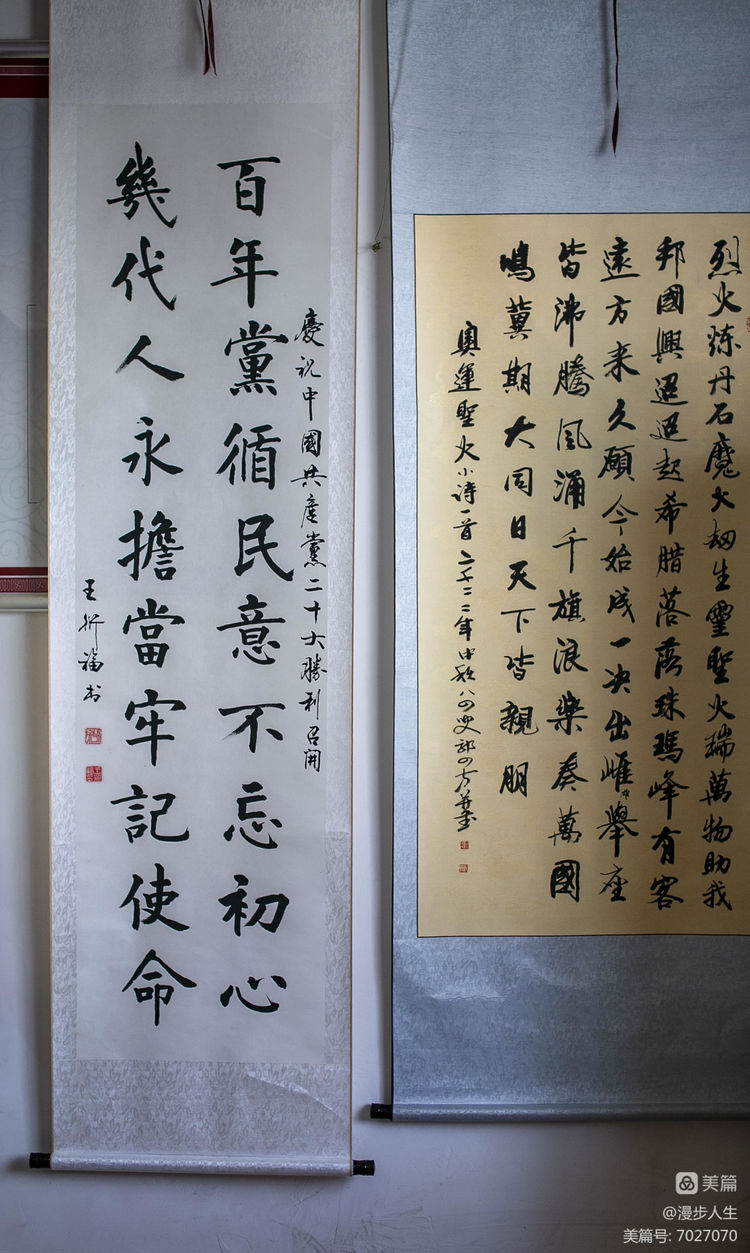 烈火炼丹石魔火刼生靈聖火瑞萬物助我
邦國興迢迢起希腊落落珠瑪峰有客
遠方来久願今始成一决出雌舉座
皆沸騰風涌千旗浪樂奏萬國
鳴冀期大同日天下皆親朋
奥運聖火小诗一首二〇二二年中秋八四叟郭四方
慶祝中國共產黨二十大勝利召開
百年黨循民意不忘初心
幾代人永擔當牢記使命
王福书
美篇
@漫步人生
美篇号: 7027070